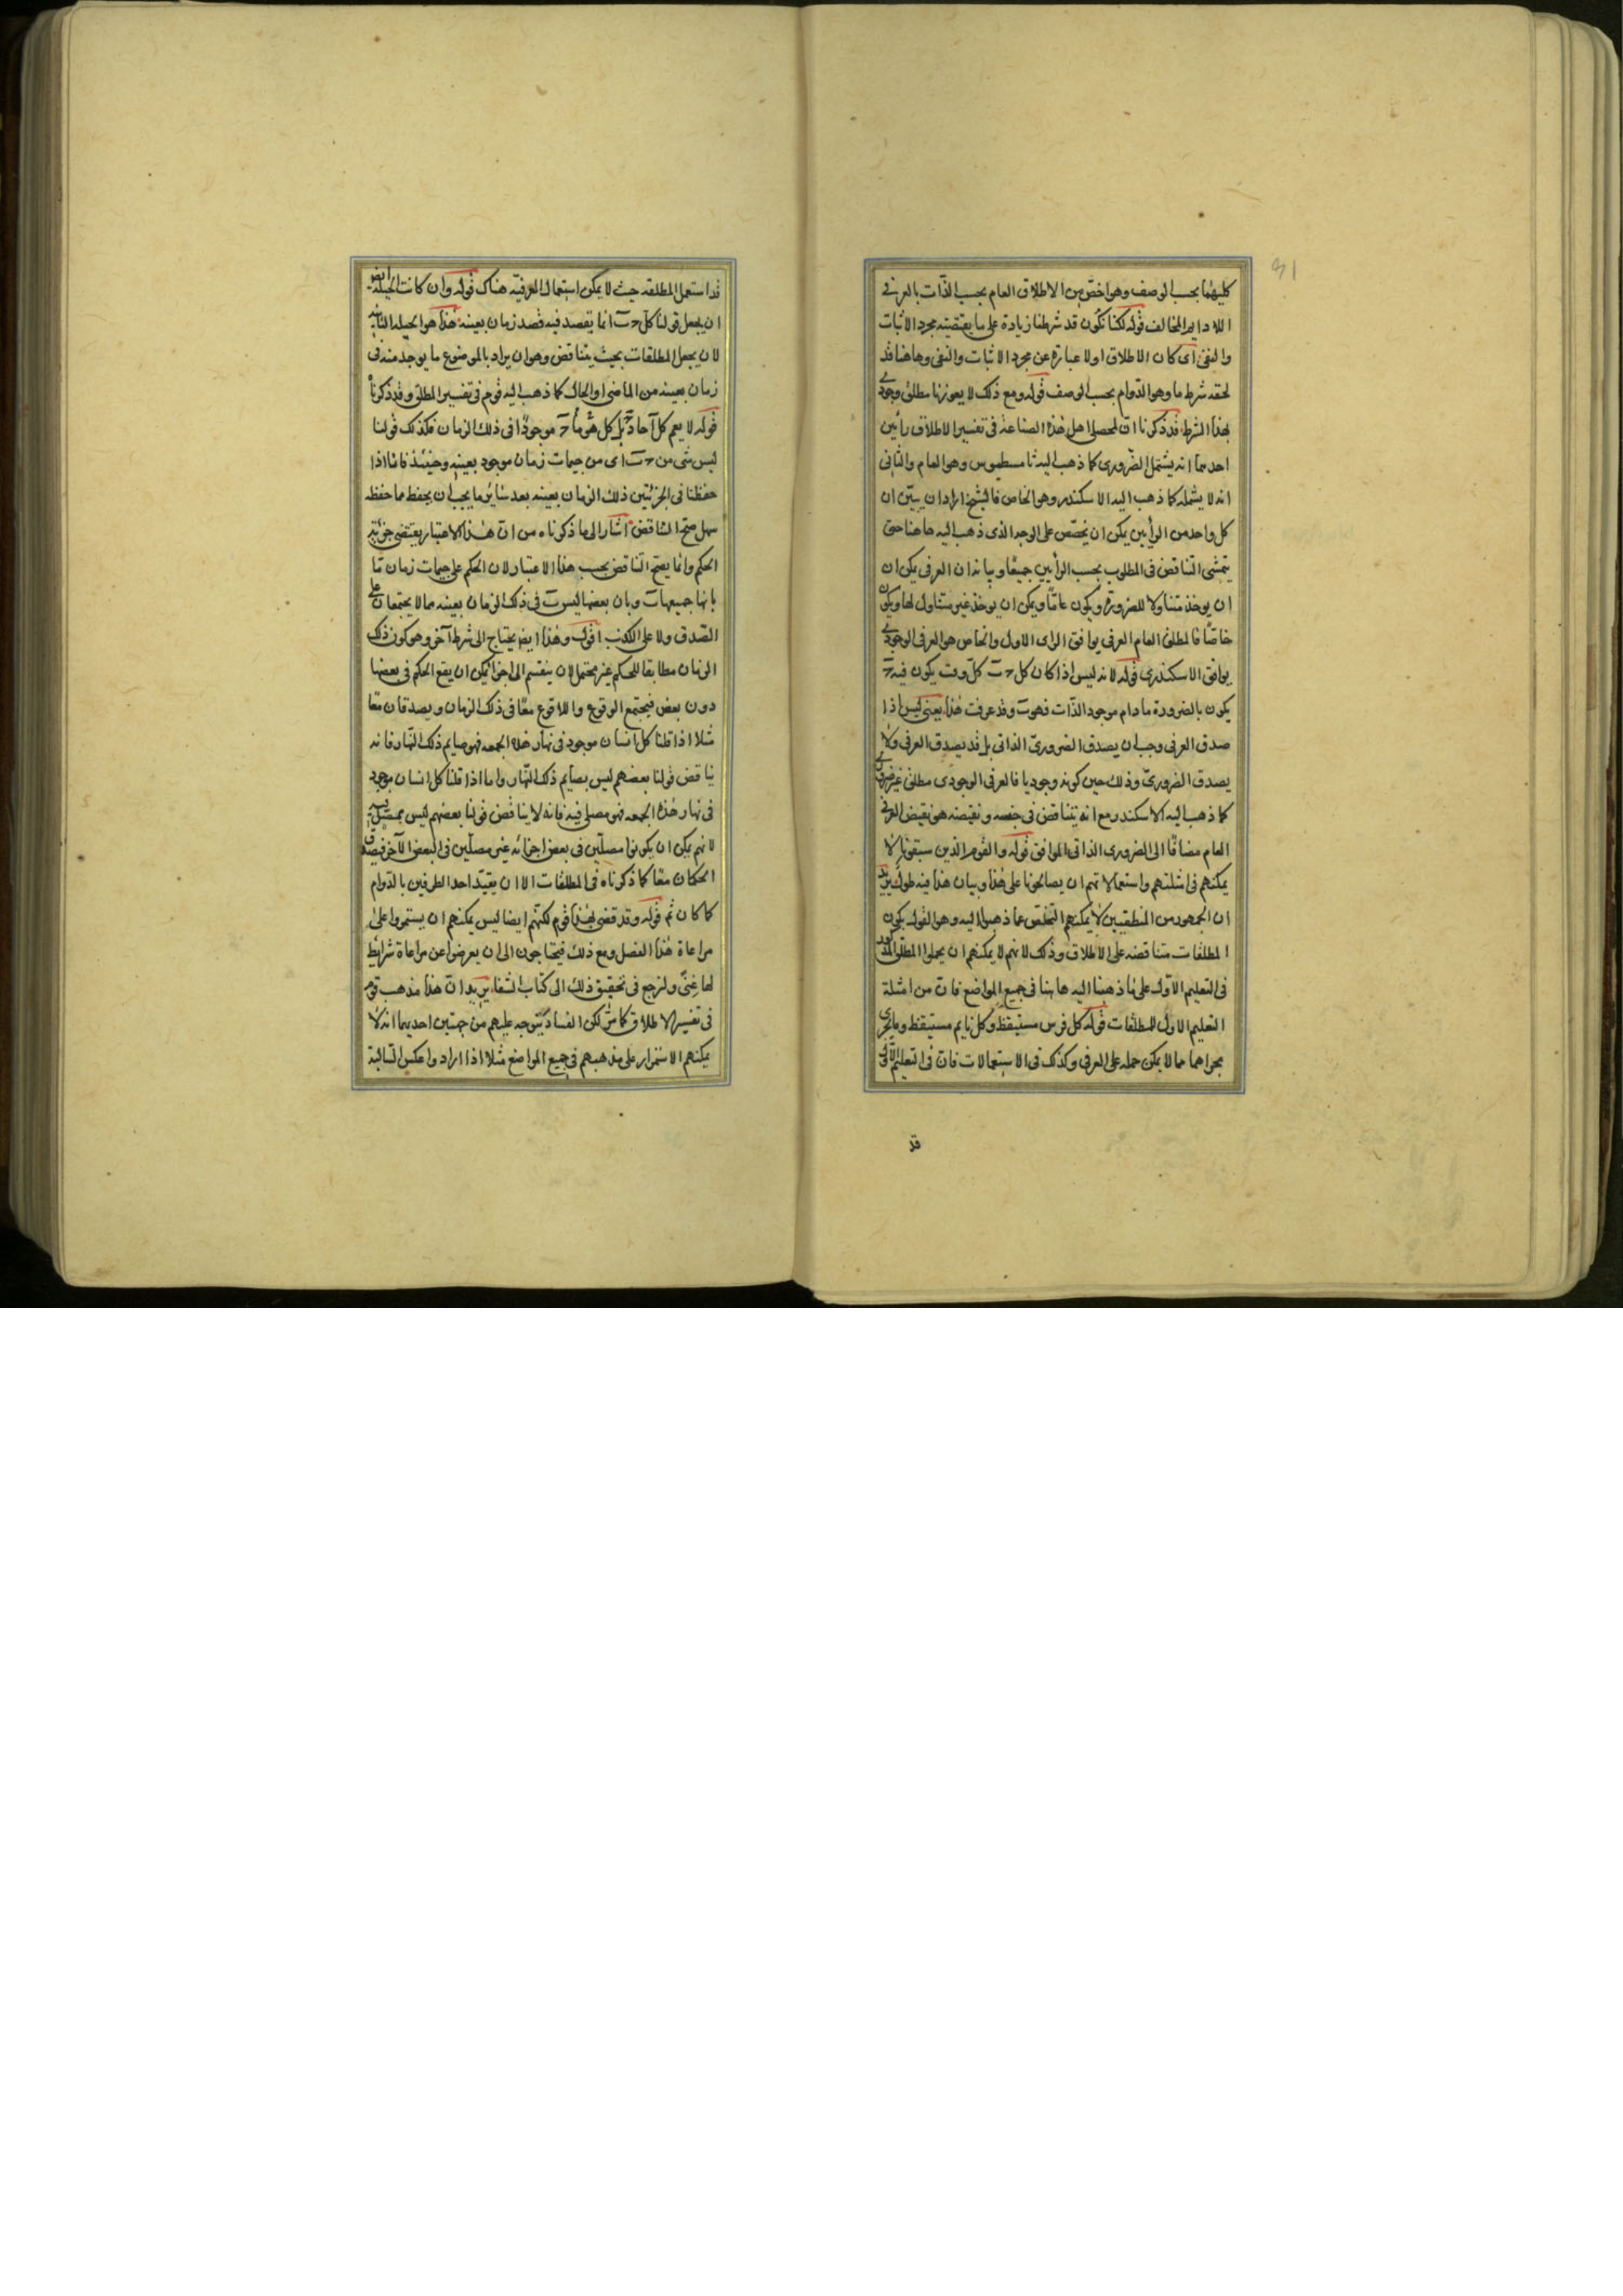 كليهما بحسب الوصف وهو اخصّ من الاطلاق العام بحسب الذّات بالعرفي
اللادايم المخالف قوله لكنا نكون قد شرطنا زيادة على ما يقتضيه مجرد الاثبات
والنفى اى كان الاطلاق اولا عبارة عن مجرد الاثبات والنفى وهاهنا قد
لحقه شرط ما وهو الدّوام بحسب الوصف قوله ومع ذلك لا يعوزنا مطلق وجودى
بهذا الشرط قد ذكرنا انّ لمحصلى اهل هذه الصناعة فى تفسير الاطلاق رأيين
احدهما انه يشتمل الضّرورى كما ذهب اليه ثامسطيوس وهو العام والثانى
انه لا يشمله كما ذهب اليه الاسكندر وهو الخاص فالشيخ اراد ان يبيّن ان
كل واحد من الرأيين يمكن ان يخصّص على الوجه الذى ذهب اليه هاهنا حتى
يتمشى التناقض فى المطلوب بحسب الرأيين جميعًا وبيانه ان العرفى يمكن ان
ان يوخذ متناولا للضرورة ويكون عامّا ويمكن ان يوخذ غير متناول لها ويكون
خاصّا فالمطلق العام العرفى يوافق الراى الاول والخاص هو العرفى الوجودى
يوافق الاسكندرى قوله لانه ليس اذا كان كل ج ب كلّ وقت يكون فيه ج
يكون بالضرورة ما دام موجود الذّات فهو ب وقد عرفت هذا يعنى ليس اذا
صدق العرفى وجب ان يصدق الضرورىّ الذاتى بل قد يصدق العرفى ولا
يصدق الضرورىّ وذلك حين كونه وجوديا فالعرفى الوجودى مطلق غير ضرورى
كما ذهب اليه الاسكندر مع انه يتناقض فى جنسه ونقيضه هو نقيض العرفى
العام مضافًا الى الضرورى الذاتى الموافق قوله والقوم الذين سبقونا لا
يمكنهم فى امثلتهم واستعمالاتهم ان يصالحونا على هذا وبيان هذا فيه طول يريد
ان الجمهور من المنطقيين لا يمكنهم التخلّص عما ذهبوا اليه وهو القول بكون
المطلقات متناقضه على الاطلاق وذلك لانهم لا يمكنهم ان يحملوا المطلق المذكور
فى التعليم الاوّل على ما ذهبنا اليه هاهنا فى جميع المواضع فانّ من امثلة
التعليم الاول للمطلقات قوله كل فرس مستيقظ وكل نايم مستيقظ وما يجرى
مجراهما مما لا يمكن حمله على العرفى وكذلك فى الاستعمالات فانّ فى التعليم الاوّل
قد
قد استعمل المطلقه حيث لا يمكن استعمال العرفيّه هناك قوله وان كانت الحيلة ايضا
ان يجعل قولنا كلّ ج ب انما يقصد فيه قصد زمان بعينه هذا هو الحيله الثانيه
لان يجعل المطلقات بحيث يتناقض وهو ان يراد بالموضوع ما يوجد منه فى
زمان بعينه من الماضى او الحال كما ذهب اليه قوم فى تفسير المطلق وقد ذكرناه
قوله لا يعم كل آحاد ج بل كل هو ما ج موجودًا فى ذلك الزمان فكذلك قولنا
ليس شى من ج ب اى من جيمات زمان موجود بعينه وحينئذ فانا اذا
حفظنا فى الجزئيّتين ذلك الزمان بعينه بعد سائر ما يجب ان يحفظ مما حفظه
سهل صحّ التناقض اشار الى ما ذكرناه من انّ هذا الاعتبار يقتضى جزئية
الحكم وانما يصحّ التناقض بحسب هذا الاعتبار لان الحكم على جيمات زمان مّا
بانها جميعها ب وبان بعضها ليس ب فى ذلك الزمان بعينه مما لا يجتمعان على
الصّدق ولا على الكذب اقول وهذا ايضا يحتاج الى شرط آخر وهو كون ذلك
الزمان مطابقا للحكم غير محتمل لان ينقسم الى اجزا يمكن ان يقع الحكم فى بعضها
دون بعض فيجتمع الوقوع واللاقوع معًا فى ذلك الزمان ويصدقان معًا
مثلا اذا قلنا كل انسان موجود فى نهار هذه الجمعه فهو صايم ذلك النّهار فانه
يناقض قولنا بعضهم ليس بصايم ذلك النّهار واما اذا قلنا كل انسان موجود
فى نهار هذه الجمعه فهو مصلى فيه فانه لا يناقض قولنا بعضهم ليس بمصلّ فيه
لانهم يمكن ان يكونوا مصلّين فى بعض اجزائه غير مصلّين فى البعض الآخر فيصدق
الحكمان معًا كما ذكرناه فى المطلقات الا ان يقيّد احد الطرفين بالدّوام
كما كان ثم قوله وقد قضى بهذا قوم لكنّهم ايضا ليس يمكنهم ان يستمروا على
مراعاة هذا الفصل ومع ذلك فيحتاجون الى ان يعرضوا عن مراعاة شرائط
لها غِنًى ولنرجع فى تحقيق ذلك الى كتاب الشفاء يريد انّ هذا مذهب قوم
فى تفسير الاطلاق كما مرّ لكن الفساد يتوجه عليهم من جهتين احديهما انه لا
يمكنهم الاستمرار على مذهبهم فى جميع المواضع مثلا اذا ارادوا عكس السالبة